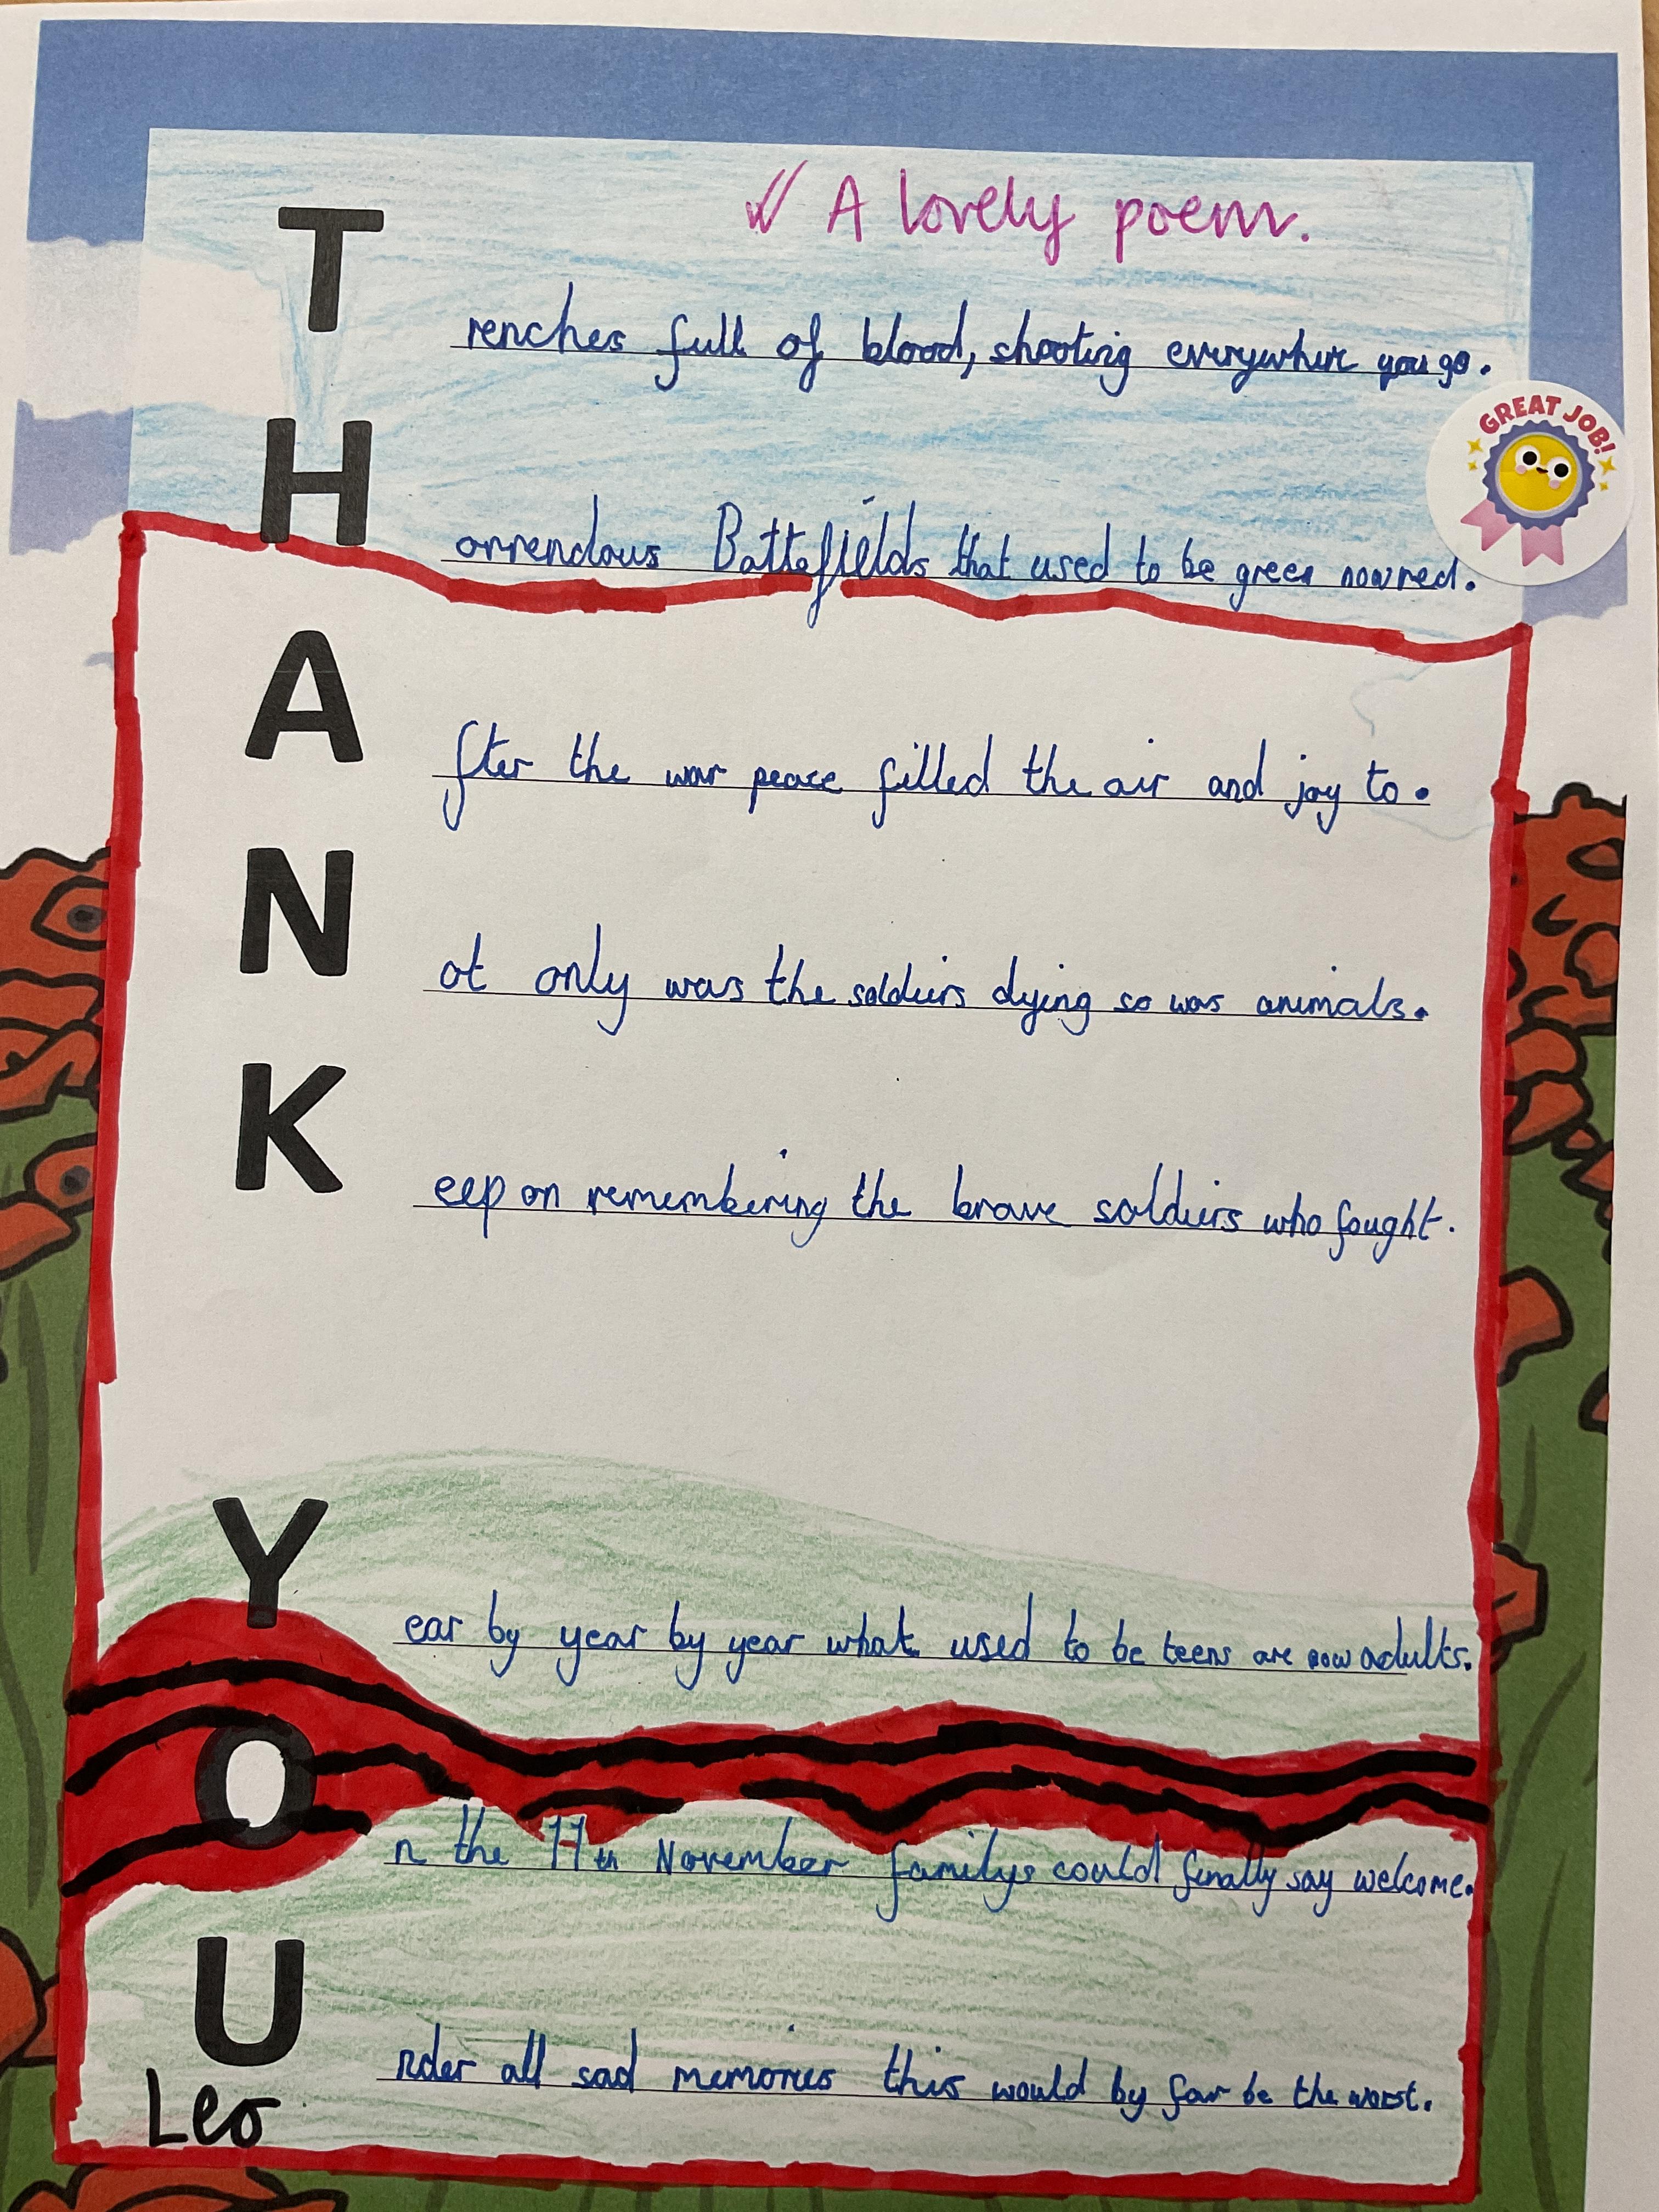 ✓✓ A lovely poem.
Trenches full of blood, shooting everywhere you go.
GREAT JOB!
Horrendous Battefields that used to be green now red.
After the war peace filled the air and joy to.
Not only was the soldiers dying so was animals.
Keep on remembering the brave soldiers who fought.
Year by year by year what used to be teens are now adults.
On the 11th November familys could finally say welcome.
Under all sad memories this would by far be the worst.
Leo